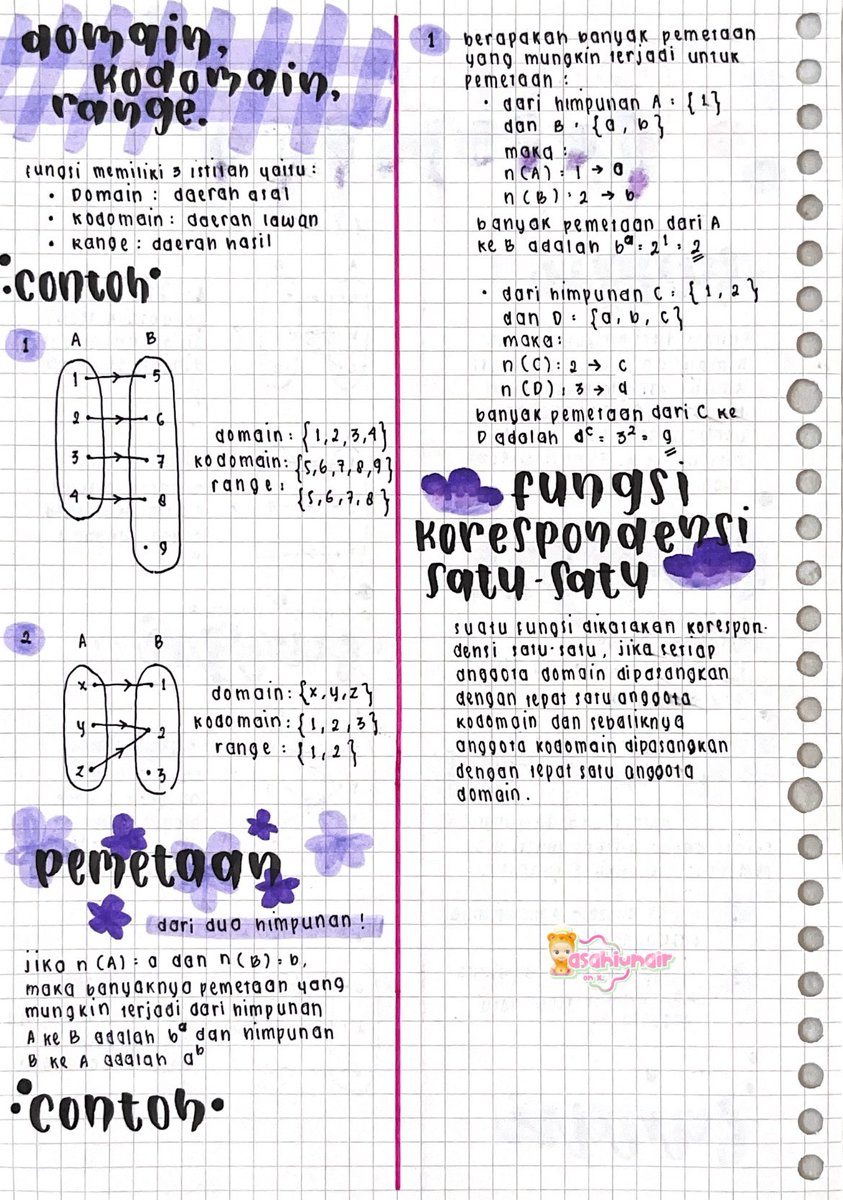 domain,
kodomain,
range.
fungsi memiliki 3 istilah yaitu :
• Domain : daerah asal
• Kodomain : daerah lawan
• Range : daerah hasil
contoh
1
A B
1 5
2 6
3 7
4 8
9
domain : {1,2,3,4}
kodomain : {5,6,7,8,9}
range :
{5,6,7,8}
2
A B
x 1
y 2
z 3
domain : {x,y,z}
kodomain : {1,2,3}
range : {1,2}
pemetaan
dari dua himpunan !
jika n(A) = a dan n(B) = b,
maka banyaknya pemetaan yang
mungkin terjadi dari himpunan
A ke B adalah bᵃ dan himpunan
B ke A adalah aᵇ
contoh
1 berapakah banyak pemetaan
yang mungkin terjadi untuk
pemetaan :
• dari himpunan A = {1}
dan B = {a, b}
maka :
n(A) = 1 → a
n(B) = 2 → b
banyak pemetaan dari A
ke B adalah bᵃ = 2¹ = 2
• dari himpunan C = {1, 2}
dan D = {a, b, c}
maka :
n(C) = 2 → c
n(D) = 3 → d
banyak pemetaan dari C ke
D adalah dᶜ = 3² = 9
fungsi
korespondensi
satu-satu
suatu fungsi dikatakan korespon-
densi satu-satu, jika setiap
anggota domain dipasangkan
dengan tepat satu anggota
kodomain dan sebaliknya
anggota kodomain dipasangkan
dengan tepat satu anggota
domain.
asahiunair
on x.